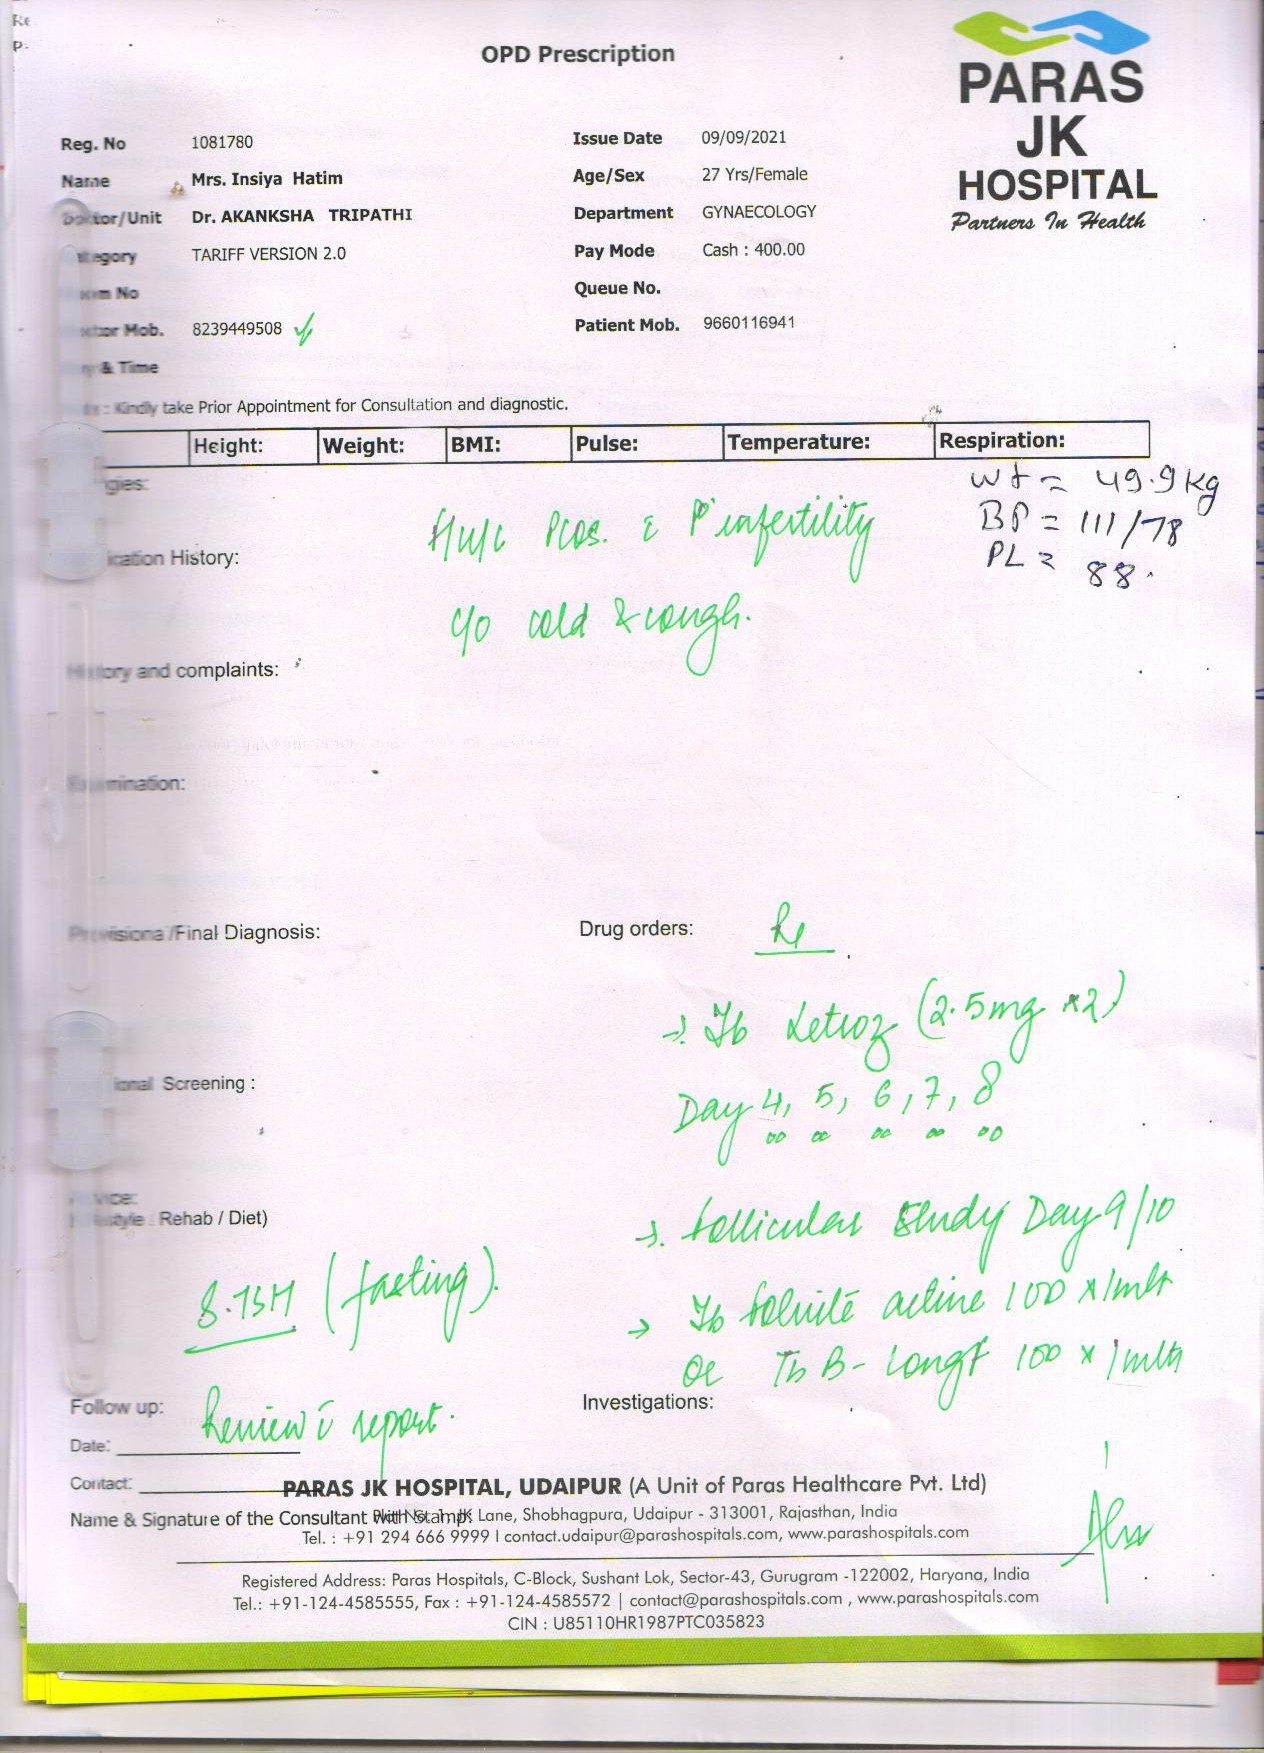 Re
P-
OPD Prescription
PARAS
JK
HOSPITAL
Partners In Health
Reg. No 1081780 Issue Date 09/09/2021
Name Mrs. Insiya Hatim Age/Sex 27 Yrs/Female
Doctor/Unit Dr. AKANKSHA TRIPATHI Department GYNAECOLOGY
Category TARIFF VERSION 2.0 Pay Mode Cash : 400.00
Room No Queue No.
Doctor Mob. 8239449508 Patient Mob. 9660116941
& Time
: Kindly take Prior Appointment for Consultation and diagnostic.
Height: Weight: BMI: Pulse: Temperature: Respiration:
gies:
wt = 49.9 kg
BP = 111/78
PL = 88.
H/o PCOS. c P' infertility
ication History:
c/o cold & cough.
History and complaints:
Examination:
Provisional/Final Diagnosis:
Drug orders: Rx
→ Tb Letroz (2.5mg x2)
Day 4, 5, 6, 7, 8
ional Screening :
→ follicular study Day 9/10
style : Rehab / Diet)
S. TSH (fasting).
→ Tb folvite active 100 x 1mth
Or Tb B-Longf 100 x 1mth
Follow up: Review c report.
Investigations:
Date:
Contact:
Name & Signature of the Consultant with Stamp:
PARAS JK HOSPITAL, UDAIPUR (A Unit of Paras Healthcare Pvt. Ltd)
JK Lane, Shobhagpura, Udaipur - 313001, Rajasthan, India
Tel. : +91 294 666 9999 I contact.udaipur@parashospitals.com, www.parashospitals.com
Registered Address: Paras Hospitals, C-Block, Sushant Lok, Sector-43, Gurugram -122002, Haryana, India
Tel.: +91-124-4585555, Fax : +91-124-4585572 | contact@parashospitals.com , www.parashospitals.com
CIN : U85110HR1987PTC035823